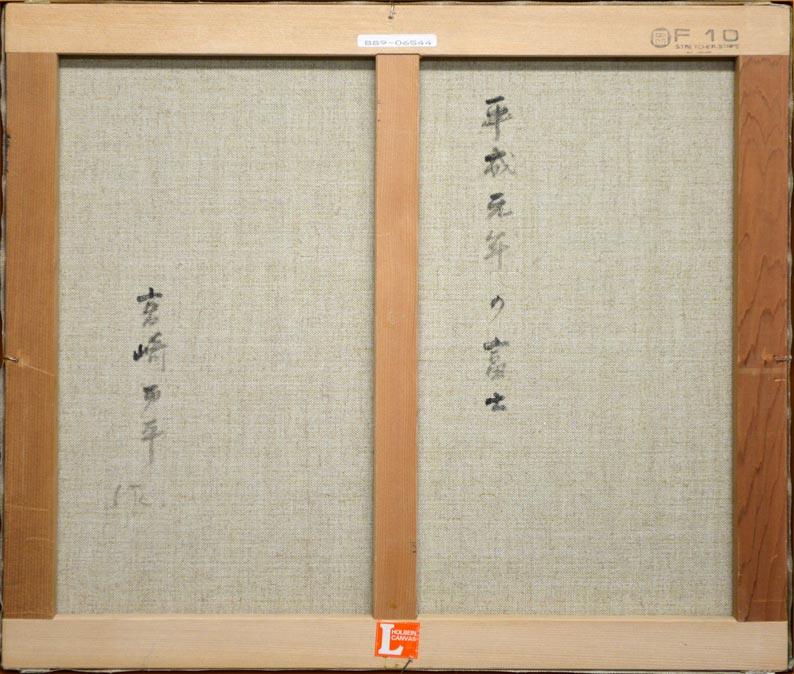 B89-06544
F 10
STRETCHER STRIPS
平成元年の富士
宮崎万平
作
L HOLBEIN
CANVAS